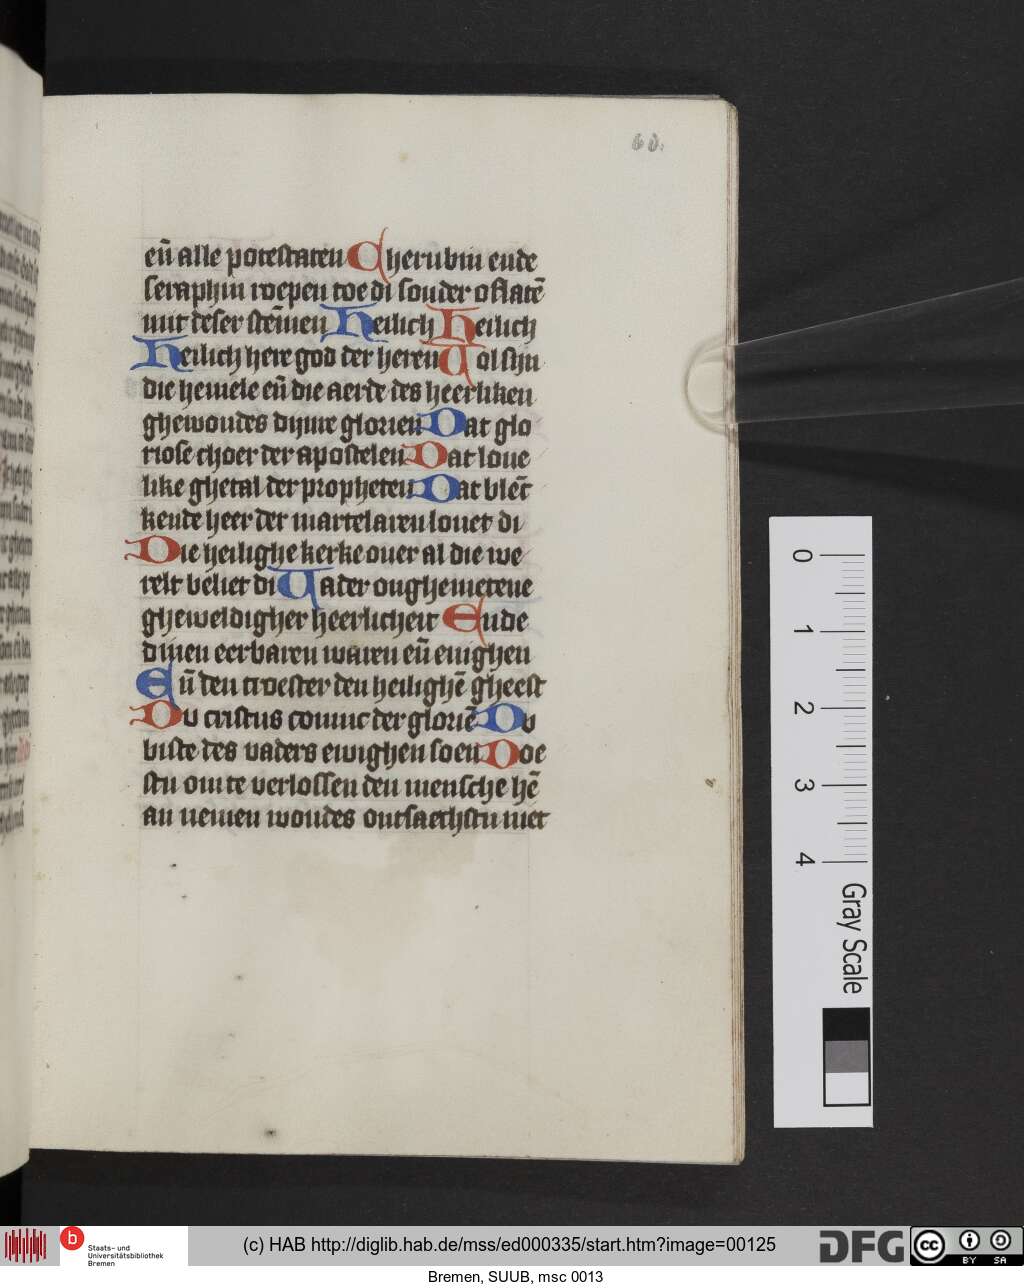 60.
en̄ alle potestaten Cherubin ende
seraphin roepen toe di sonder oflatē
mit deser stēmen Heilich Heilich
Heilich here god der heren Vol siin
die hemele en̄ die aerde des heerliken
ghewoudes dijnre glorien Dat glo
riose choer der apostelen Dat loue
like ghetal der propheten Dat blēc
kende heer der martelaren louet di
Die heilighe kerke ouer al die we
relt beliet di Vader onghemetene
gheweldigher heerlicheit Ende
dinen eerbaren waren en̄ enighen
En̄ den troester den heilighē gheest
Du cristus coninc der gloriē Du
biste des vaders ewighen soen Doe
stu om te verlossen den mensche hē
an nemen woudes ontsaechstu niet
0
1
2
3
4
Gray Scale
b
Staats- und
Universitätsbibliothek
Bremen
(c) HAB http://diglib.hab.de/mss/ed000335/start.htm?image=00125
DFG
cc
BY SA
Bremen, SUUB, msc 0013